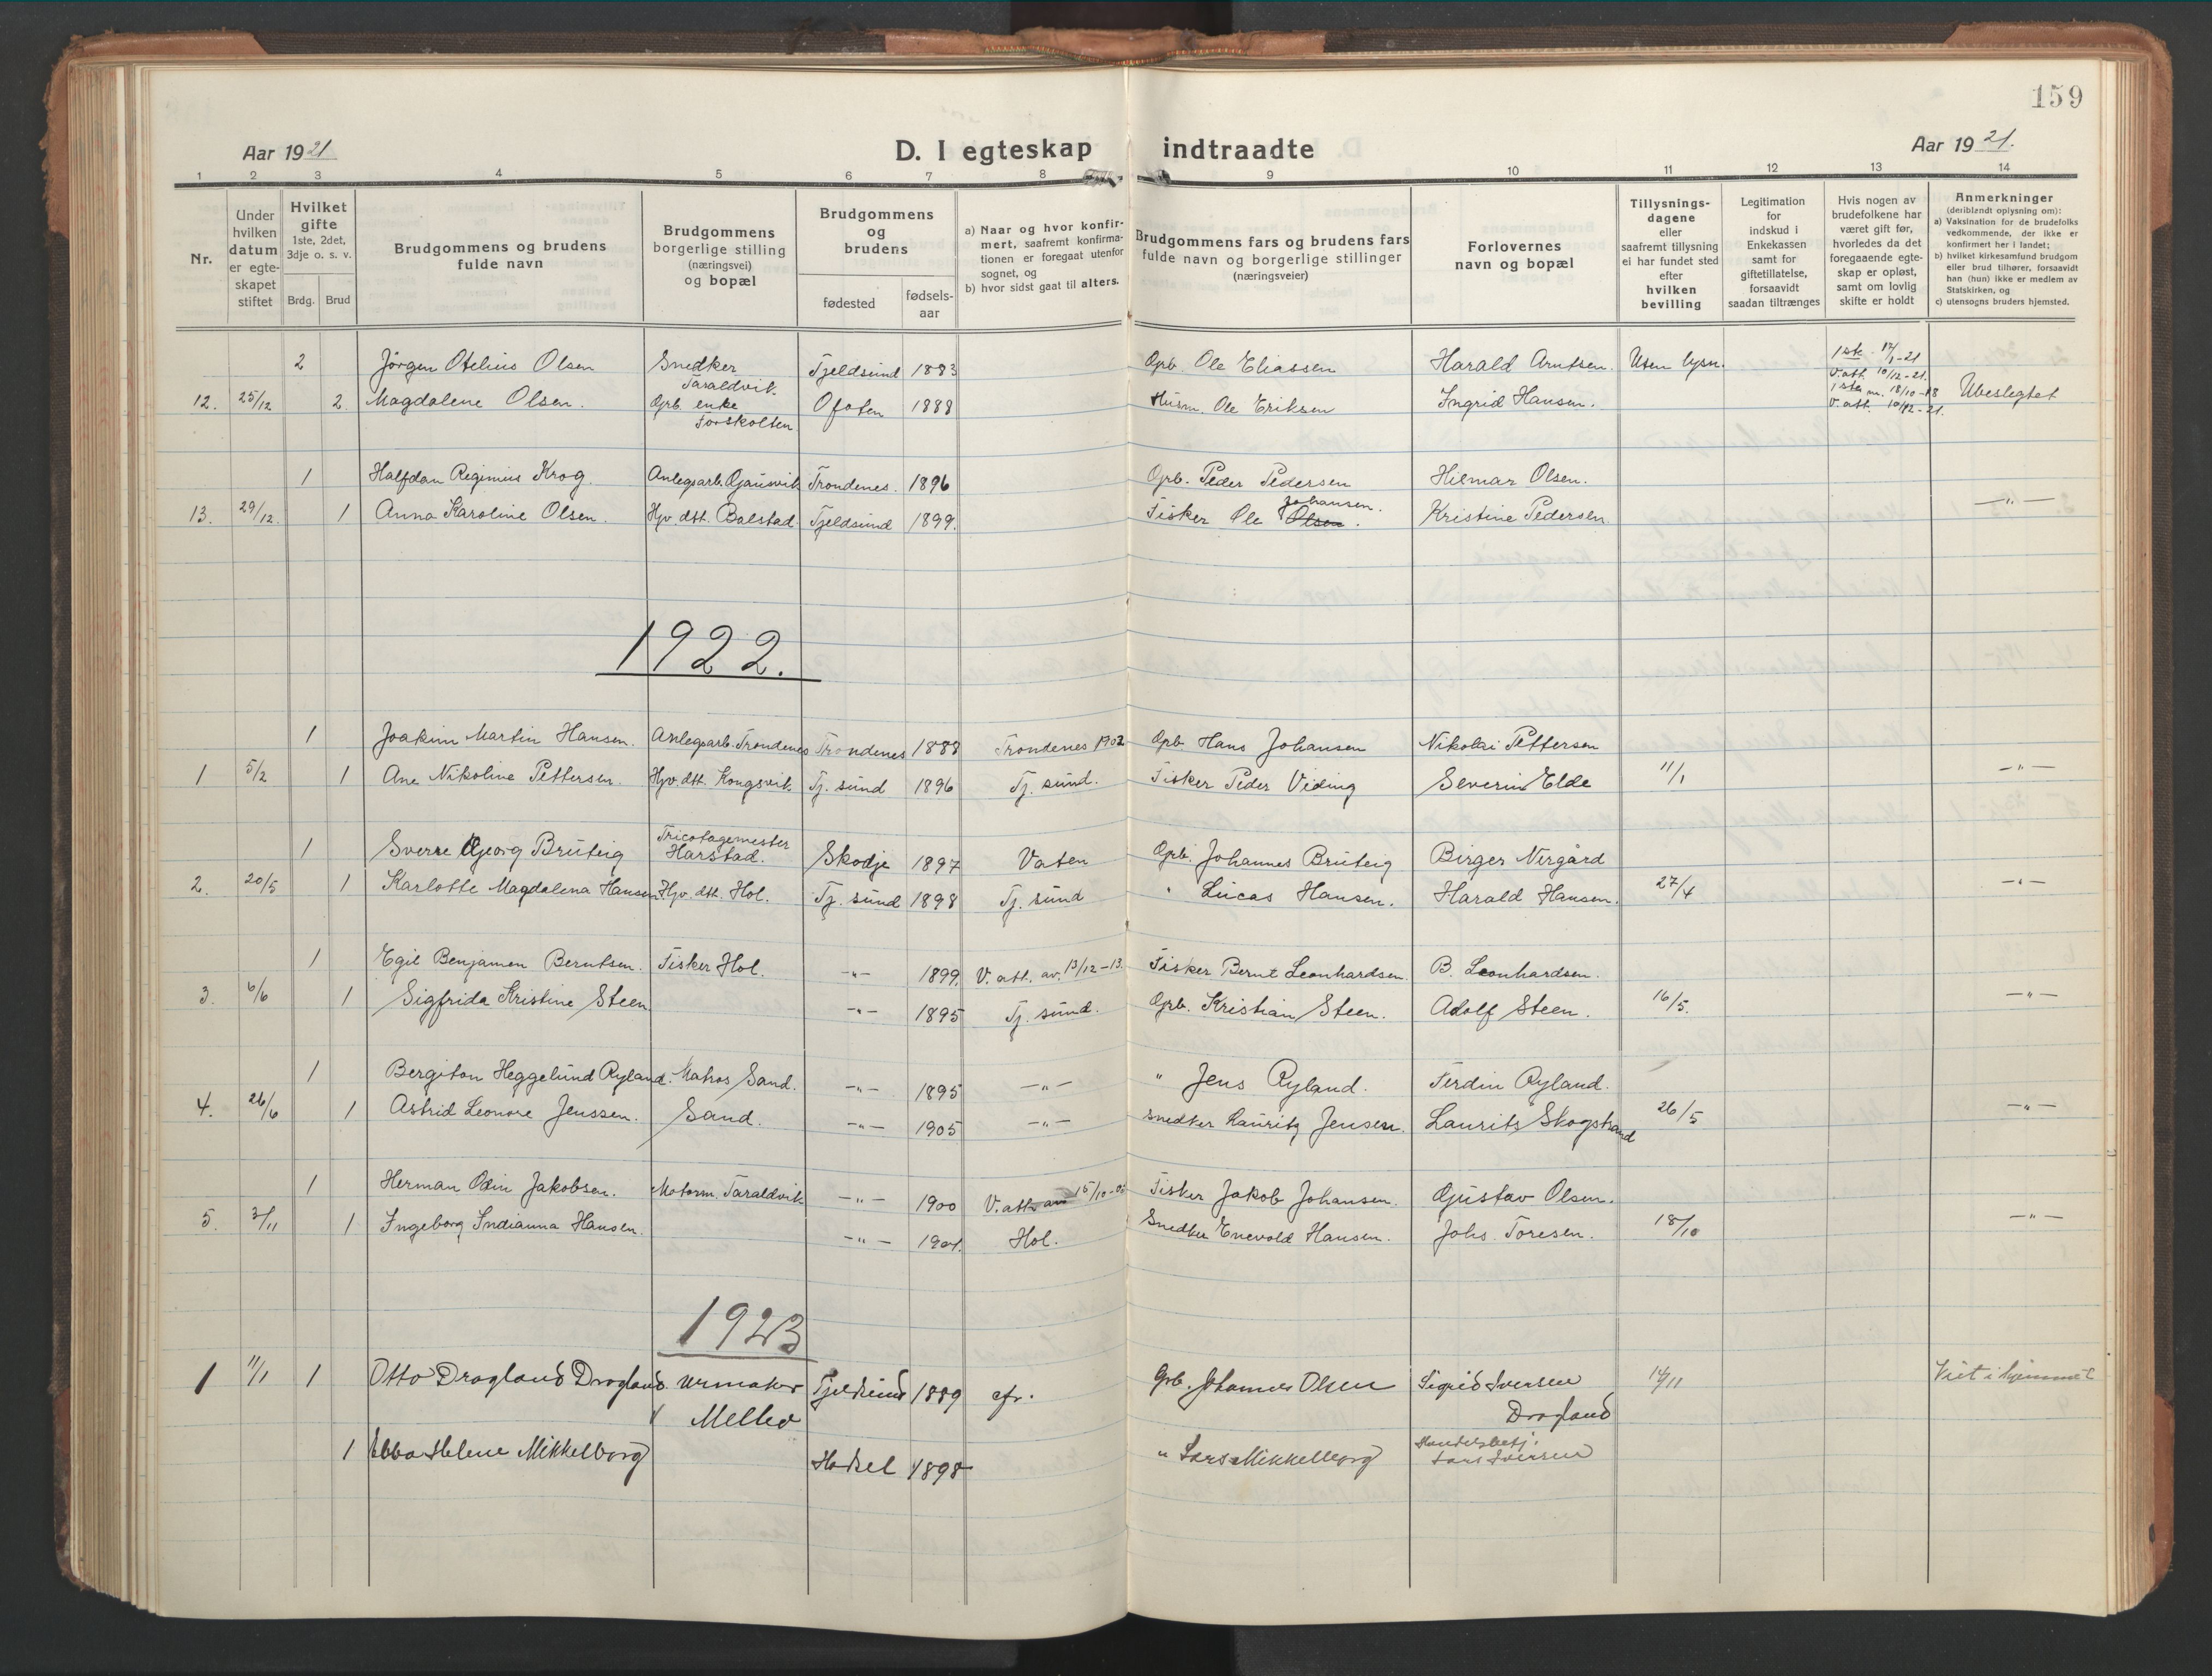 159
Aar 1921
D. I egteskap indtraadte
Aar 1921.
1 2 3 4 5 6 7 8 9 10 11 12 13 14
Nr.
Under hvilken datum er egteskapet stiftet
Hvilket gifte 1ste, 2det, 3dje o. s. v.
Brdg. Brud
Brudgommens og brudens fulde navn
Brudgommens borgerlige stilling (næringsvei) og bopæl
Brudgommens og brudens
fødested
fødsels-aar
a) Naar og hvor konfirmert, saafremt konfirmationen er foregaat utenfor sognet, og
b) hvor sidst gaat til alters.
Brudgommens fars og brudens fars fulde navn og borgerlige stillinger (næringsveier)
Forlovernes navn og bopæl
Tillysningsdagene eller saafremt tillysning ei har fundet sted efter hvilken bevilling
Legitimation for indskud i Enkekassen samt for giftetillatelse, forsaavidt saadan tiltrænges
Hvis nogen av brudefolkene har været gift før, hvorledes da det foregaaende egteskap er opløst, samt om lovlig skifte er holdt
Anmerkninger (deriblandt oplysning om):
a) Vaksination for de brudefolks vedkommende, der ikke er konfirmert her i landet;
b) hvilket kirkesamfund brudgom eller brud tilhører, forsaavidt han (hun) ikke er medlem av Statskirken, og
c) utensogns bruders hjemsted.
2 Jörgen Otelius Olsen Snedker Taraldvik Tjeldsund 1883 Gprb. Ole Eliassen Harald Arntsen. Uten lysn. 1ste 17/1-21 V. att. 10/12-21.
12. 25/12 2. Magdalene Olsen. Gprb. enke Forskolten Ofoten 1888 Husm. Ole Eriksen Ingrid Hansen. 1ste m. 18/10-18 V. att. 10/12-21. Ubeslegtet
1 Halfdan Reginius Krog. Anlegsarb. Gausvik Trondenes. 1896 Gprb. Peder Pedersen Hilmar Olsen.
13. 29/12. 1 Anna Karoline Olsen. Hjv. dtt. Balstad. Tjeldsund 1899. Fisker Ole Olsen Johansen. Kristine Pedersen —"—
1922.
1 Joakim Martin Hansen. Anlegsarb. Trondenes Trondenes 1888 Trondenes 1902 Gprb. Hans Johansen Nikolai Pettersen
1 5/2 1 Ane Nikoline Pettersen. Hjv. dtt. Kongsvik Tj. sund 1896 Tj. sund. Fisker Peder Viding Severin Elde 11/1 —"—
1 Sverre Georg Bruteig Tricotagemester Harstad. Skodje 1897 Vaten Gprb. Johannes Bruteig Birger Nergård
2. 20/5 1 Karlotte Magdalena Hansen Hjv. dtt. Hol. Tj. sund 1898 Tj. sund " Lucas Hansen. Harald Hansen. 27/4 —"—
1 Egil Benjamen Berntsen. Fisker Hol. —"— 1899. V. att. av. 13/12-13. Fisker Bernt Leonhardsen. B. Leonhardsen.
3. 6/6 1 Sigfrida Kristine Steen —"— 1895 Tj. sund. Gprb. Kristian Steen. Adolf Steen. 16/5. —"—
1 Bergiton Heggelund Ryland. Matros Sand. —"— 1895 —"— " Jens Ryland. Ferdin Ryland.
4. 26/6 1 Astrid Leonore Jenssen. Sand. —"— 1905 —"— Snedker Lauritz Jensen. Laurits Skogstrand 26/5 —"—
1 Herman Odin Jakobsen. Motorm. Taraldvik —"— 1900 V. att. av 15/10- Fisker Jakob Johansen. Gustav Olsen.
5. 3/11 1 Ingeborg Indianna Hansen. —"— 1901. Hol. Snedker Enevold Hansen. Johs. Toresen. 18/10 —"—
1923
1 11/1 1 Otto Dragland Dragland. Urmaker Melbo Tjeldsund 1889 cfr. Gprb. Johannes Olsen Sigrid Iversen Dragland 14/11 Viet i hjemmet
1 Ebba Helene Mikkelborg Hadsel 1898 " Lars Mikkelborg Handelsbetj. Lars Iversen